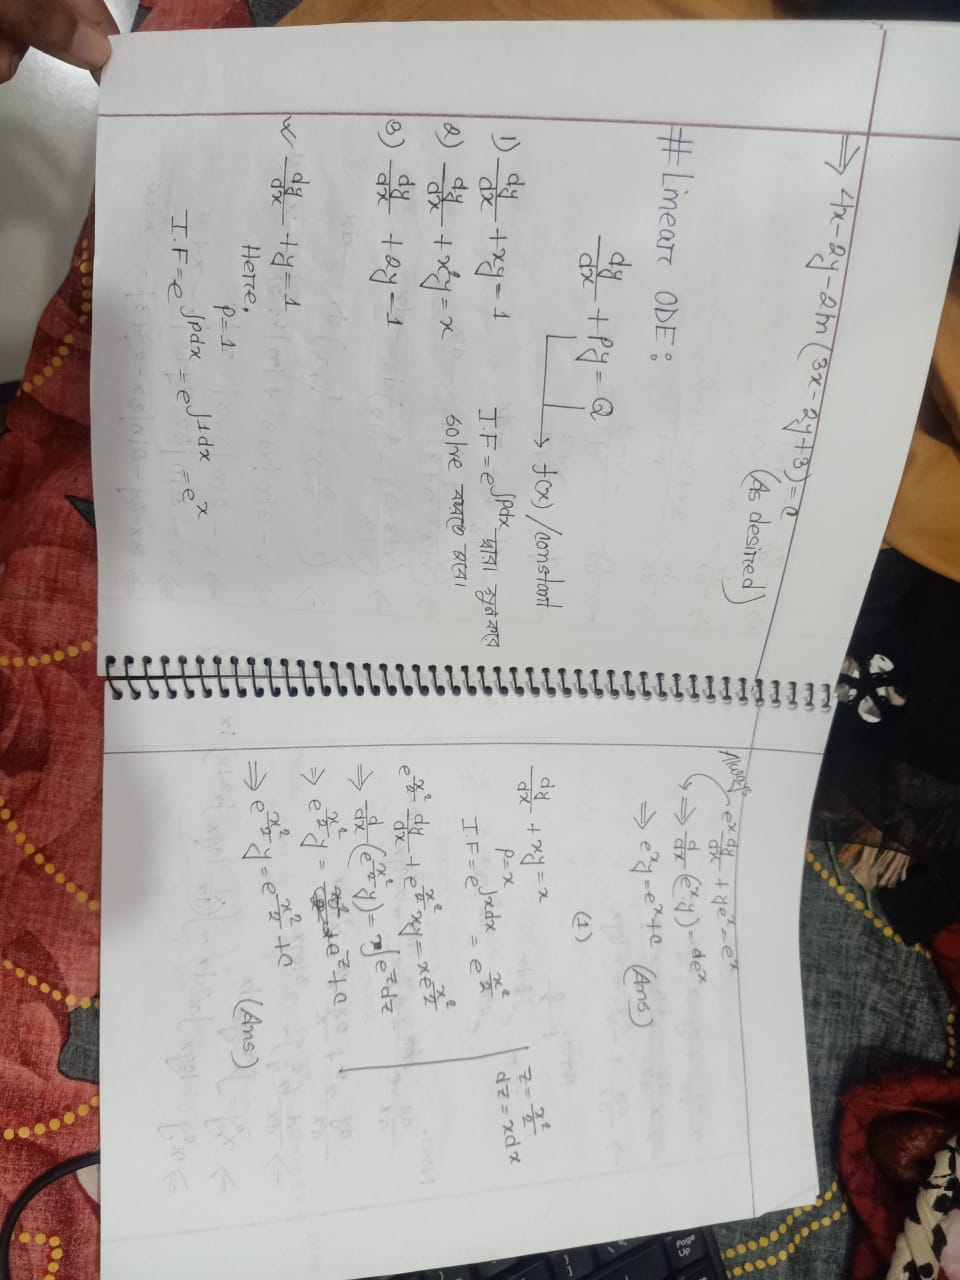 ⇒ 4x-2y-2ln(3x-2y+3)=c
(As desired)
# Linear ODE:
dy/dx + Py = Q
→ f(x) / constant
1) dy/dx + xy = 1
I.F = e^∫pdx দ্বারা গুন করে
solve করতে হবে।
2) dy/dx + x²y = x
3) dy/dx + 2y = 1
dy/dx + y = 1
Here,
P=1
I.F = e^∫pdx = e^∫1dx = e^x
Always
e^x dy/dx + ye^x = e^x
⇒ d/dx (e^x.y) = de^x
⇒ e^x y = e^x + c (Ans.)
(1)
dy/dx + xy = x
P=x
I.F = e^∫xdx = e^x²/2
z = x²/2
dz = xdx
e^x²/2 dy/dx + e^x²/2 xy = xe^x²/2
⇒ d/dx (e^x²/2 y) = ∫e^z dz
⇒ e^x²/2 y = e^z + c
⇒ e^x²/2 y = e^x²/2 + c
(Ans)